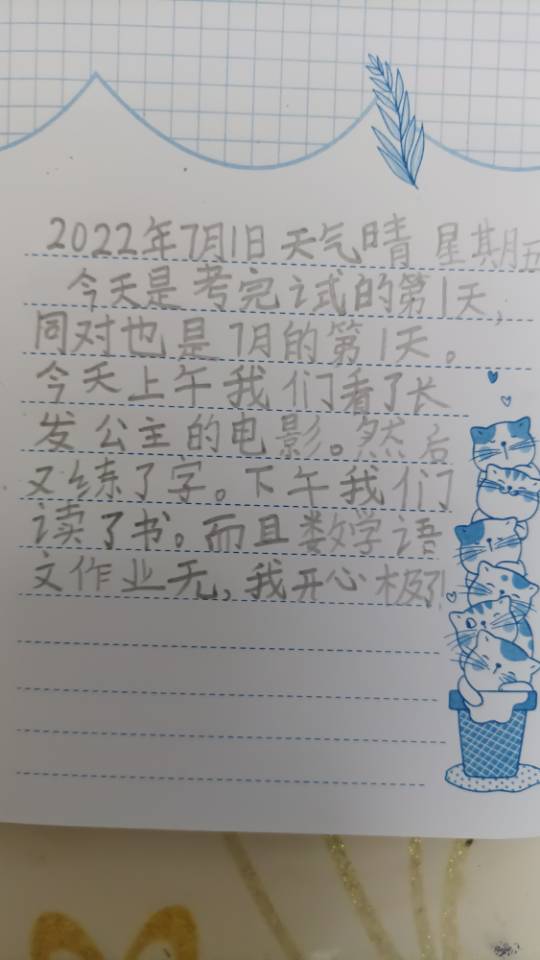 2022年7月1日 天气晴 星期五
今天是考完试的第1天,
同对也是7月的第1天。
今天上午我们看了长
发公主的电影。然后
又练了字。下午我们
读了书。而且数学语
文作业无,我开心极了!